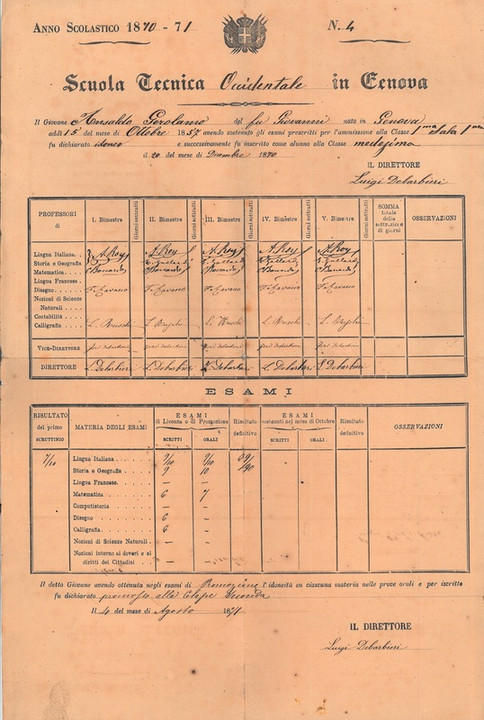 ANNO SCOLASTICO 1870 - 71 N. 4
SCUOLA TECNICA Occidentale IN GENOVA
Il Giovane Ansaldo Gerolamo del fu Giovanni nato in Genova
addì 15 del mese di Ottobre 1857 avendo sostenuto gli esami prescritti per l'ammissione alla Classe 1ma
fu dichiarato idoneo e successivamente fu inscritto come alunno alla Classe medesima
il 20 del mese di Dicembre 1870
IL DIRETTORE
Luigi Debarbieri
PROFESSORI di I. Bimestre Giorni sottratti II. Bimestre Giorni sottratti III. Bimestre Giorni sottratti IV. Bimestre Giorni sottratti V. Bimestre Giorni sottratti SOMMA totale della sottrazione di giorni OSSERVAZIONI
Lingua Italiana. A. Roy A. Roy A. Roy A. Roy A. Roy
Storia e Geografia
Matematica
Lingua Francese.
Disegno F. Cavano F. Cavano F. Cavano F. Cavano F. Cavano
Nozioni di Scienze
Naturali
Contabilità
Calligrafia
VICE-DIRETTORE
DIRETTORE L. Debarbieri L. Debarbieri L. Debarbieri L. Debarbieri L. Debarbieri
ESAMI
RISULTATO del primo SCRUTTINIO MATERIA DEGLI ESAMI ESAMI di Licenza o di Promozione SCRITTI ORALI Risultato definitivo ESAMI sostenuti nel mese di Ottobre SCRITTI ORALI Risultato definitivo OSSERVAZIONI
7/10 Lingua Italiana 9/10 9/10
Storia e Geografia 9 10
Lingua Francese - -
Matematica 6 7
Computisteria - -
Disegno 6 -
Calligrafia 6 -
Nozioni di Scienze Naturali - -
Nozioni intorno ai doveri e ai
diritti dei Cittadini
Il detto Giovane avendo ottenuta negli esami di Promozione l'idoneità in ciascuna materia nelle prove orali e per iscritto
fu dichiarato promosso alla Classe Seconda
Il 4 del mese di Agosto 1871
IL DIRETTORE
Luigi Debarbieri